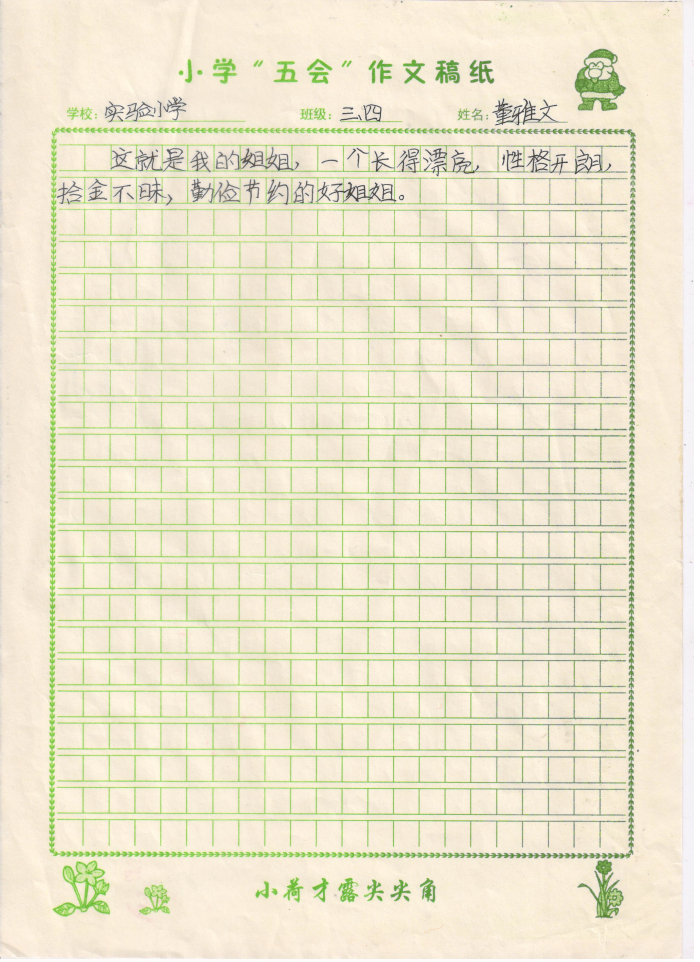 小学“五会”作文稿纸
学校：实验小学 班级：三.四 姓名：董雅文
这就是我的姐姐，一个长得漂亮，性格开朗，
拾金不昧，勤俭节约的好姐姐。
小荷才露尖尖角